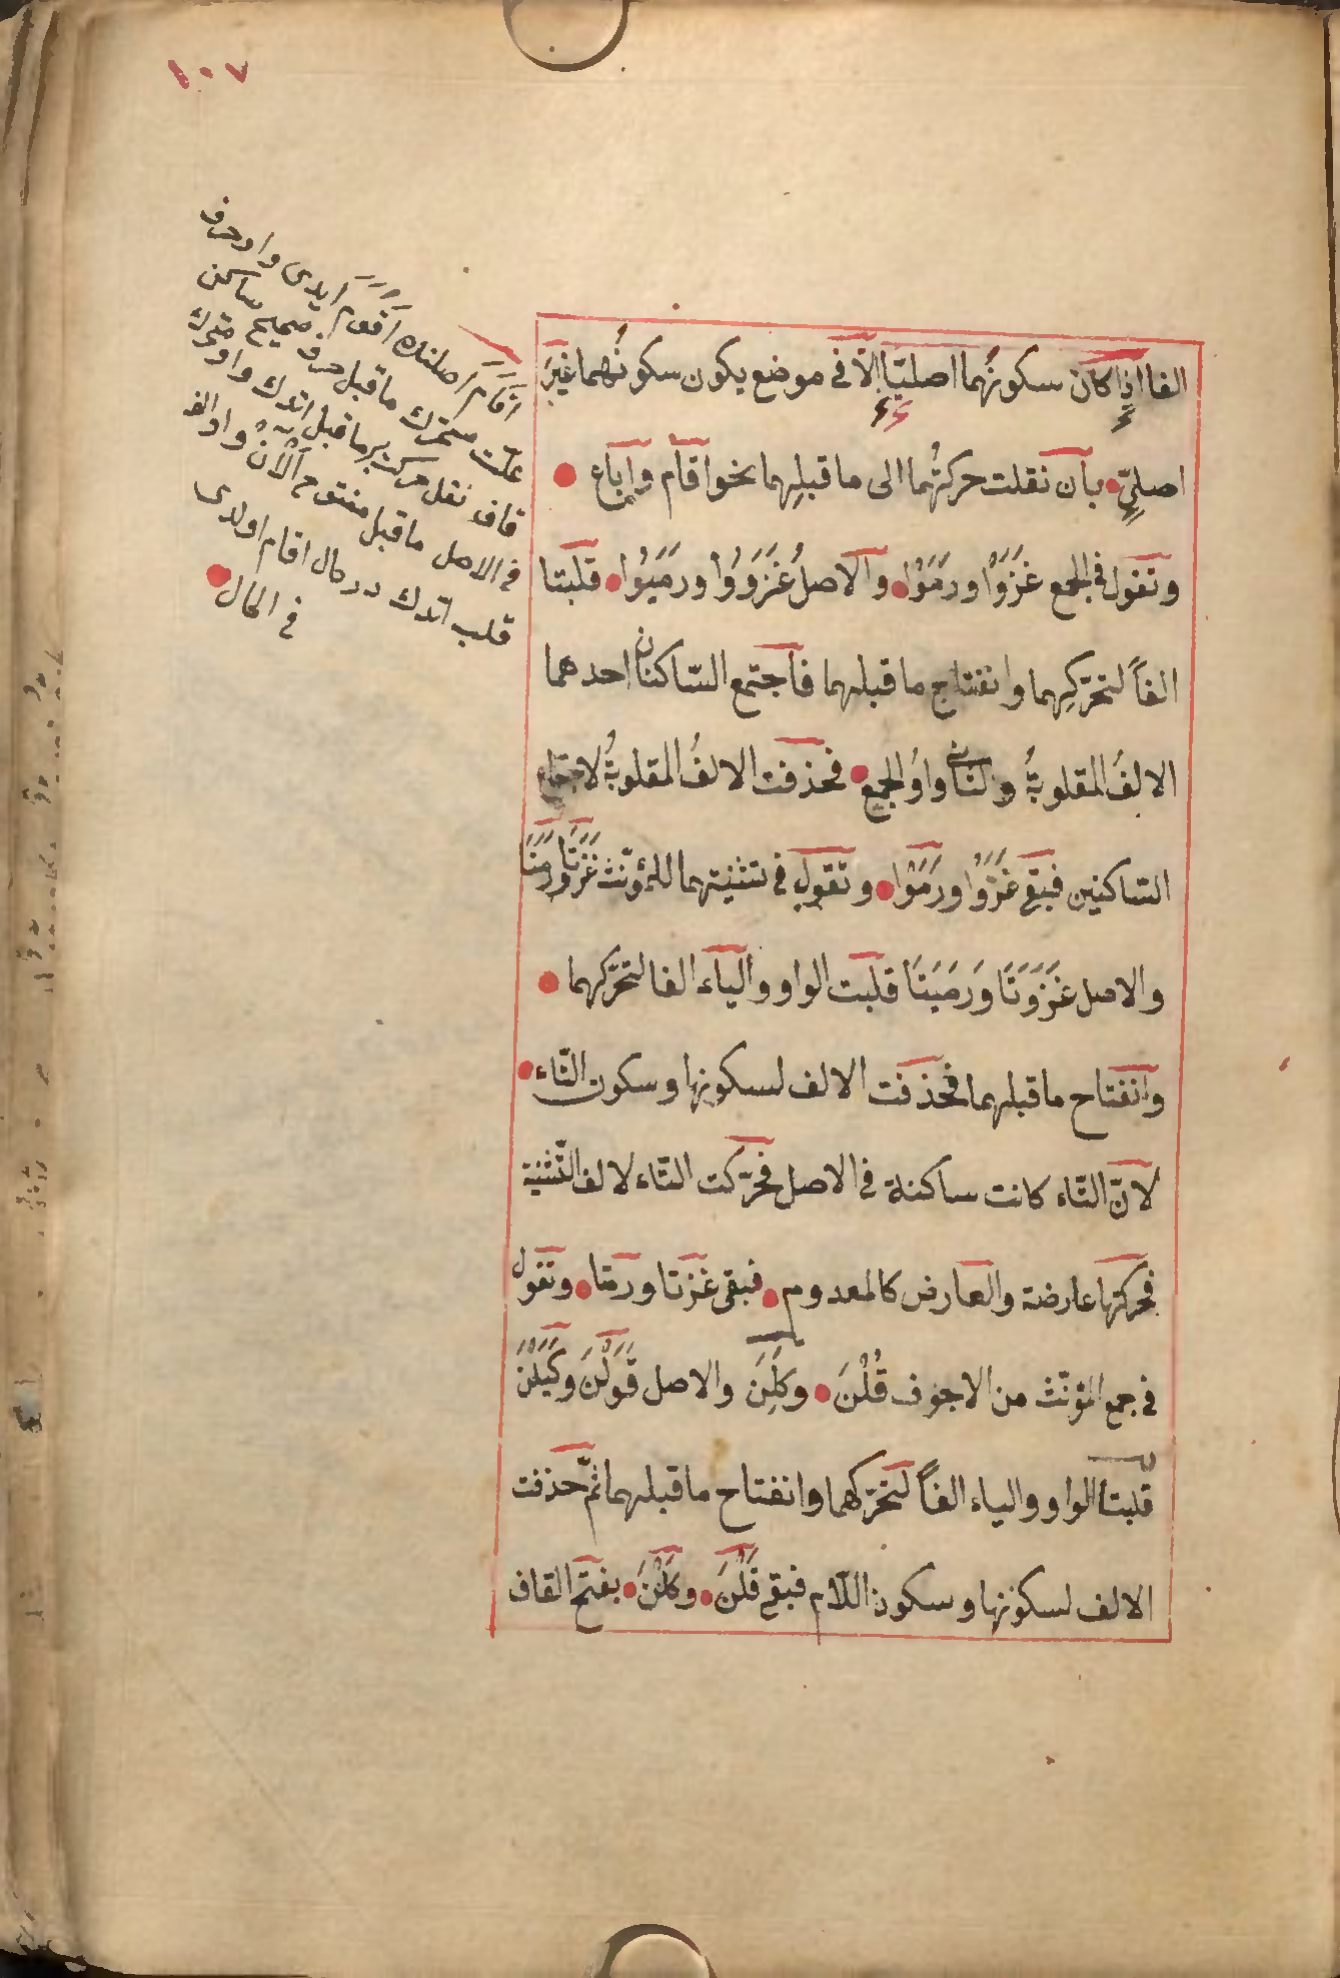 ١٠٧
الفا اذا كان سكونُهما اصليّا إلّا فى موضع يكون سكونُهما غيرَ
اصلىٍّ بأن نقلت حركتُهما الى ما قبلِهما نحو اقام واباع
وتقول فى الجمع غَزَوْا ورَمَوْا والاصلُ غَزَوُوا ورَمَيُوا قلبتا
الفاً لتحرّكِهما وانفتاح ما قبلهما فاجتمع السّاكنان احدهما
الالفُ المقلوبةُ والثانى واوُ الجمع فحذفت الالفُ المقلوبةُ لاجتماع
السّاكنين فبقى غَزَوْا ورَمَوْا وتقول فى تثنيتهما للمؤنّث غَزَتَا ورَمَتَا
والاصل غَزَوَتَا وَرَمَيَتَا قلبت الواو والياء الفا لتحرّكهما
وانفتاح ما قبلهما فحذفت الالف لسكونها وسكون التّاء
لانّ التّاء كانت ساكنة فى الاصل فحرّكت التّاء لالف التّثنية
فحركتها عارضة والعارض كالمعدوم فبقى غزتا ورمتا وتقول
فى جمع المؤنّث من الاجوف قُلْنَ وكِلْنَ والاصل قَوَلْنَ وكَيَلْنَ
قلبتا الواو والياء الفاً لتحرّكهما وانفتاح ما قبلهما ثمّ حذفت
الالف لسكونها وسكون اللّام فبقى قَلْنَ وكَلْنَ بفتح القاف
اَقَامَ اصلنده اَقْوَمَ ايدى واو حرف
علّت متحرّك ما قبل حرف صحيح ساكن
قاف نقل حركت ما قبل اتدك واو متحرك
فى الاصل ما قبل مفتوح الآن واو الف
قلب اتدك در حال اقام اولدى
فى الحال